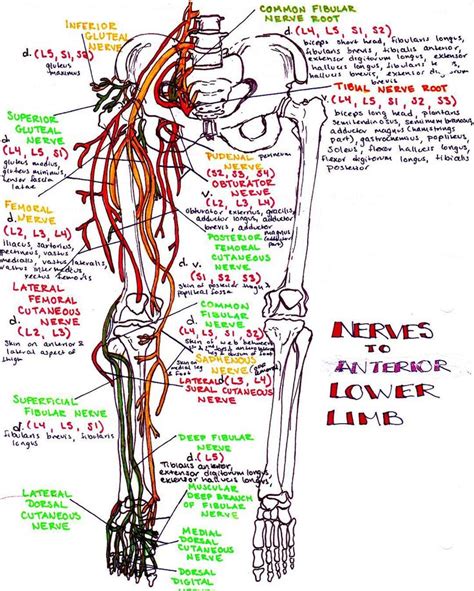 COMMON FIBULAR
NERVE ROOT
d. (L4, L5, S1, S2)
biceps short head, fibularis longus,
fibularis brevis, tibialis anterior,
extensor digitorum longus, extensor
hallucis longus, fibularis
hallucis brevis, extensor
brevis
TIBIAL NERVE ROOT
(L4, L5, S1, S2, S3)
biceps long head, plantaris
semitendinosus, semimem branosus,
adductor magnus (hamstrings
part), gastrocnemius, popliteus,
soleus, flexor hallucis longus
flexor digitorum longus, tibialis
posterior
INFERIOR
GLUTEAL
NERVE
d. (L5, S1, S2)
gluteus
maximus
SUPERIOR
GLUTEAL
NERVE
d.
(L4, L5, S1)
gluteus medius,
gluteus minimus,
tensor fascia
latae
FEMORAL
NERVE
d.
(L2, L3, L4)
iliacus, sartorius,
pectineus, vastus
medialis, vastus lateralis,
vastus intermedius
rectus femoris
LATERAL
FEMORAL
CUTANEOUS
NERVE
d.
(L2, L3)
skin on anterior &
lateral aspect of
thigh
PUDENAL perineum
NERVE
(S2, S3, S4)
OBTURATOR
NERVE
v.
(L2, L3, L4)
obturator externus, gracilis,
adductor longus, adductor
brevis, adductor
magnus
POSTERIOR
FEMORAL
CUTANEOUS
NERVE
d.
(S1, S2, S3)
skin of posterior thigh &
popliteal fossa
COMMON
FIBULAR
NERVE
d.
(L4, L5, S1, S2)
skin of web between
SAPHENOUS
NERVE
skin on
medial
leg &
foot
(L3, L4)
LATERAL
SURAL CUTANEOUS
NERVE
SUPERFICIAL
FIBULAR NERVE
d. (L4, L5, S1)
fibularis brevis, fibularis
longus
DEEP FIBULAR
NERVE
d. (L5)
Tibialis anterior,
extensor digitorum longus,
extensor hallucis longus,
MUSCULAR
DEEP BRANCH
OF FIBULAR
NERVE
LATERAL
DORSAL
CUTANEOUS
NERVE
MEDIAL
DORSAL
CUTANEOUS
NERVE
DORSAL
DIGITAL
NERVE
NERVES
TO
ANTERIOR
LOWER
LIMB